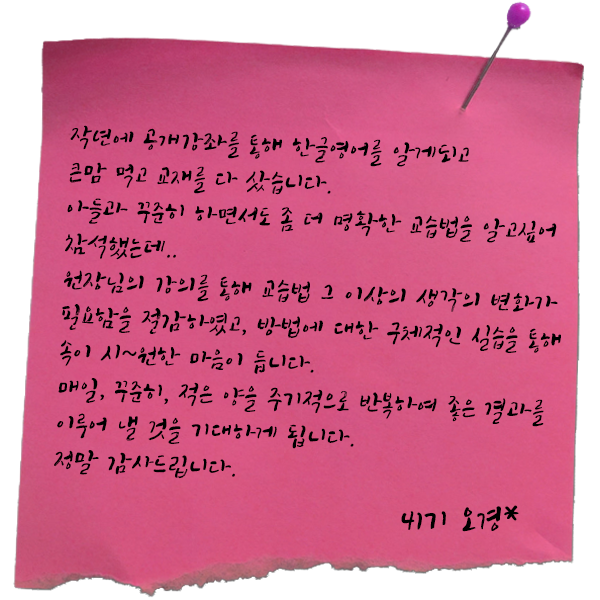 작년에 공개강좌를 통해 한글영어를 알게되고
큰맘 먹고 교재를 다 샀습니다.
아들과 꾸준히 하면서도 좀 더 명확한 교습법을 알고싶어
참석했는데..
원장님의 강의를 통해 교습법 그 이상의 생각의 변화가
필요함을 절감하였고, 방법에 대한 구체적인 실습을 통해
속이 시~원한 마음이 듭니다.
매일, 꾸준히, 적은 양을 주기적으로 반복하여 좋은 결과를
이루어 낼 것을 기대하게 됩니다.
정말 감사드립니다.
41기 오경*